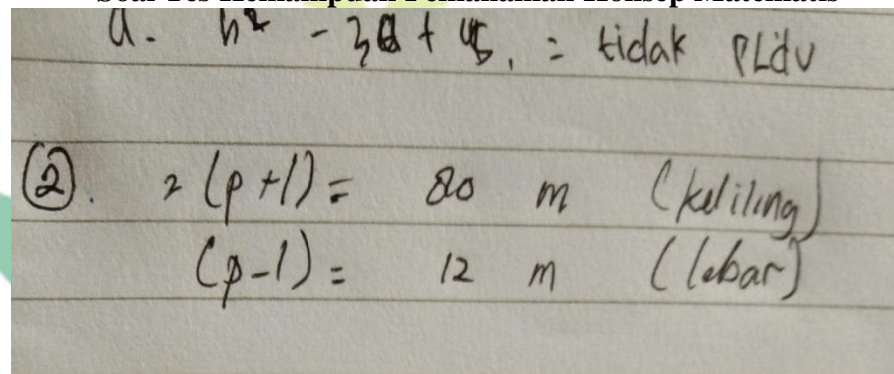 Soal Tes Kemampuan Pemahaman Konsep Matematis
a. h² - 3a + 45, = tidak PLdv
②. 2 (p+l) = 80 m (keliling)
(p-l) = 12 m (lebar)